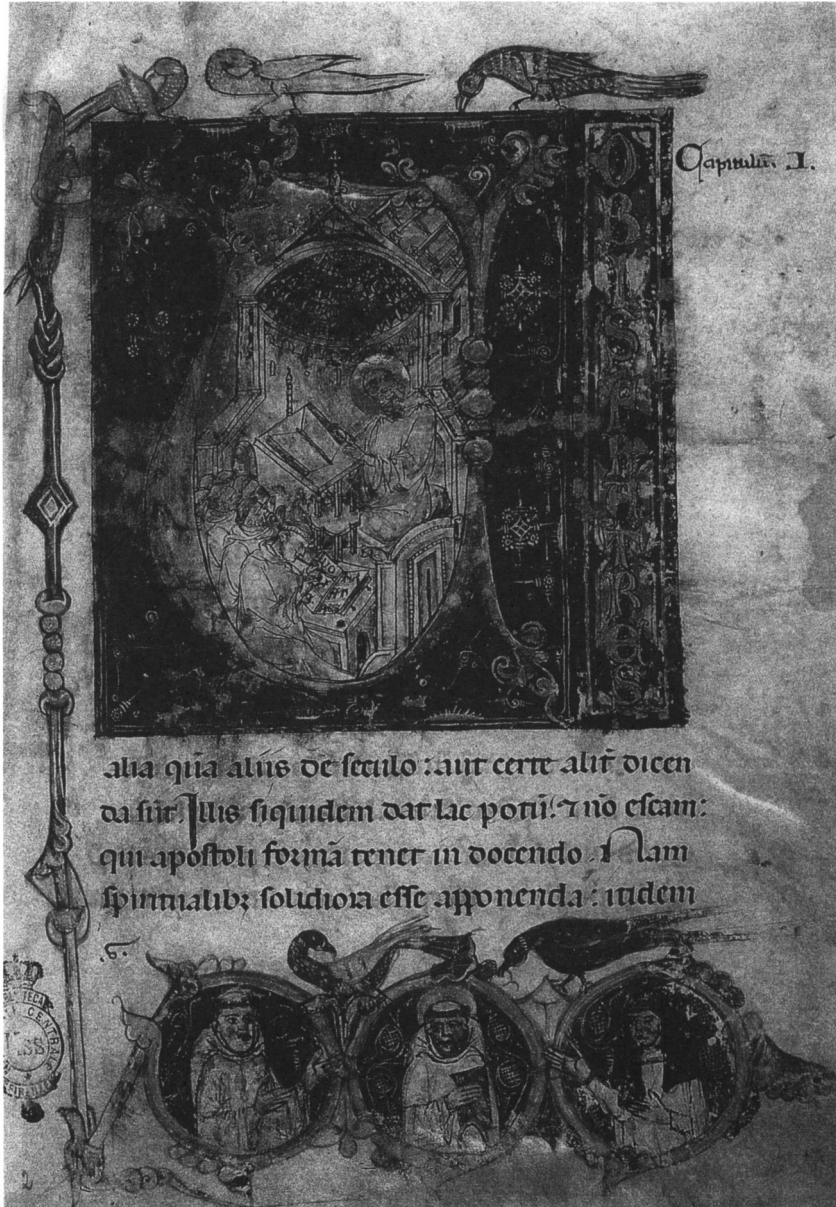 Capitulū. I.
OBISFRATRES
alia quā aliis de seculo : aut certe alit̄ dicen
da sūt. Illis siquidem dat lac potū : ⁊ nō escam :
qui apostoli formā tenet in docendo. Nam
spiritualibꝫ solidiora esse apponenda : itidem
2